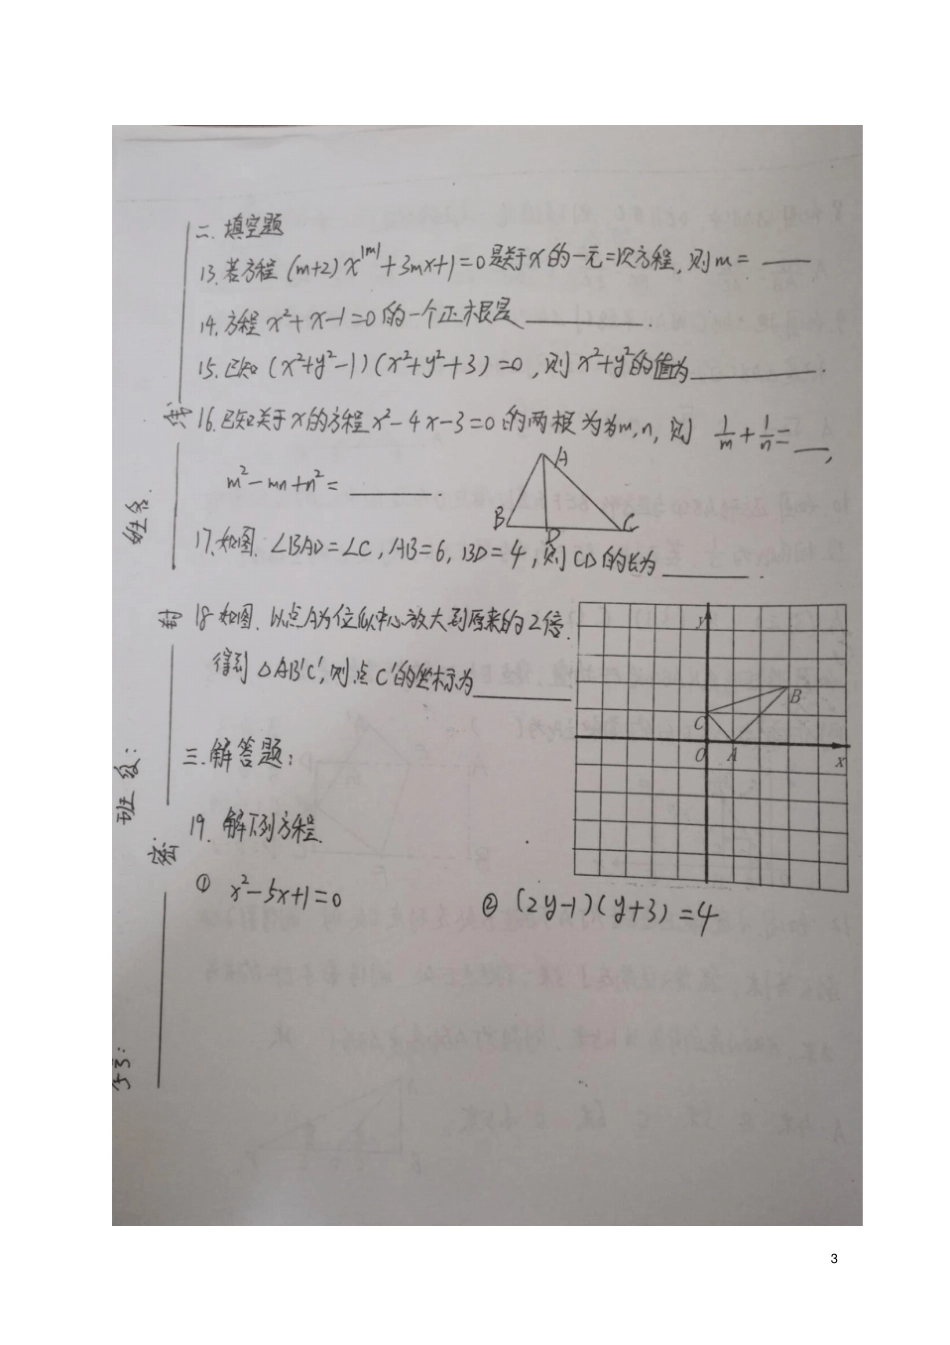 二. 填空题
13. 若方程 (m+2) x^|m| + 3mx+1=0 是关于x的一元二次方程, 则 m = ____
14. 方程 x²+x-1=0 的一个正根是 ____.
15. 已知 (x²+y²-1)(x²+y²+3)=0, 则 x²+y²的值为 ____.
线
16. 已知关于x的方程 x²-4x-3=0 的两根为为m,n, 则 1/m + 1/n = __,
m²-mn+n² = ____.
A
B D C
姓名.
17. 如图. ∠BAD=∠C, AB=6, BD=4, 则 CD的长为 ____.
封
18 如图. 以点A为位似中心放大到原来的2倍.
得到 △AB'C', 则点C'的坐标为 ____
y
B
C
O A x
三. 解答题:
班级:
19. 解下列方程.
密
① x²-5x+1=0 ② (2y-1)(y+3)=4
3